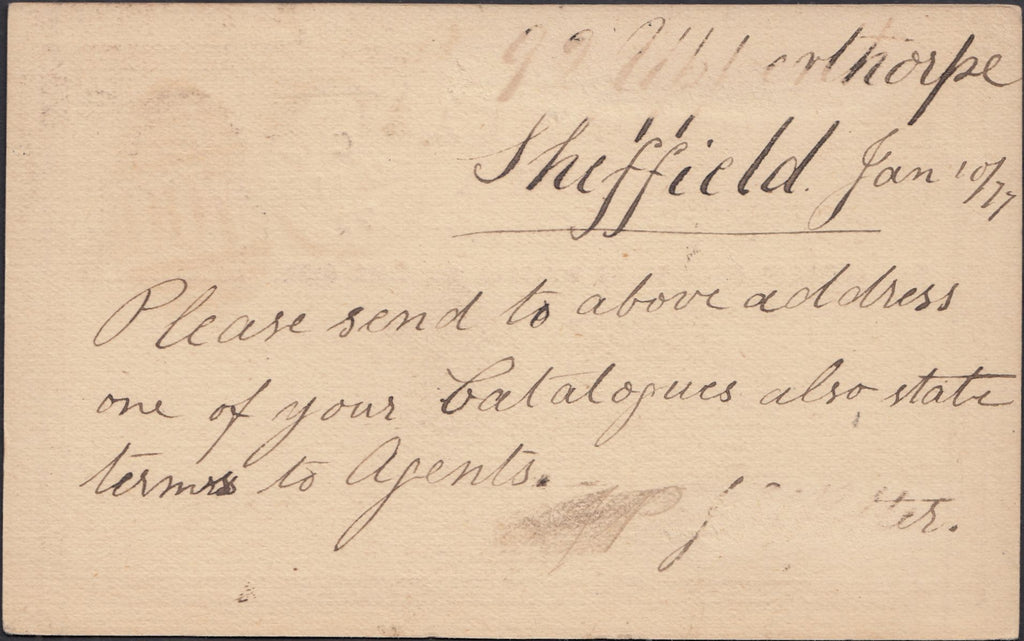 92 Upperthorpe
Sheffield. Jan 10/77
Please send to above address
one of your Catalogues also state
terms to Agents.